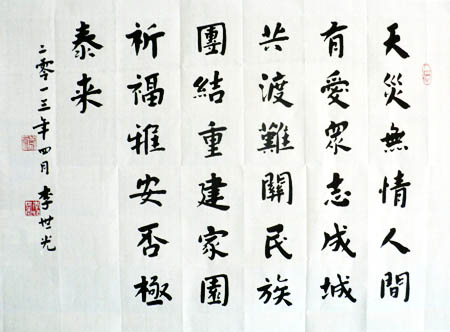 天災無情人間
有愛眾志成城
共渡難關民族
團結重建家園
祈福雅安否極
泰来
二零一三年四月李世光